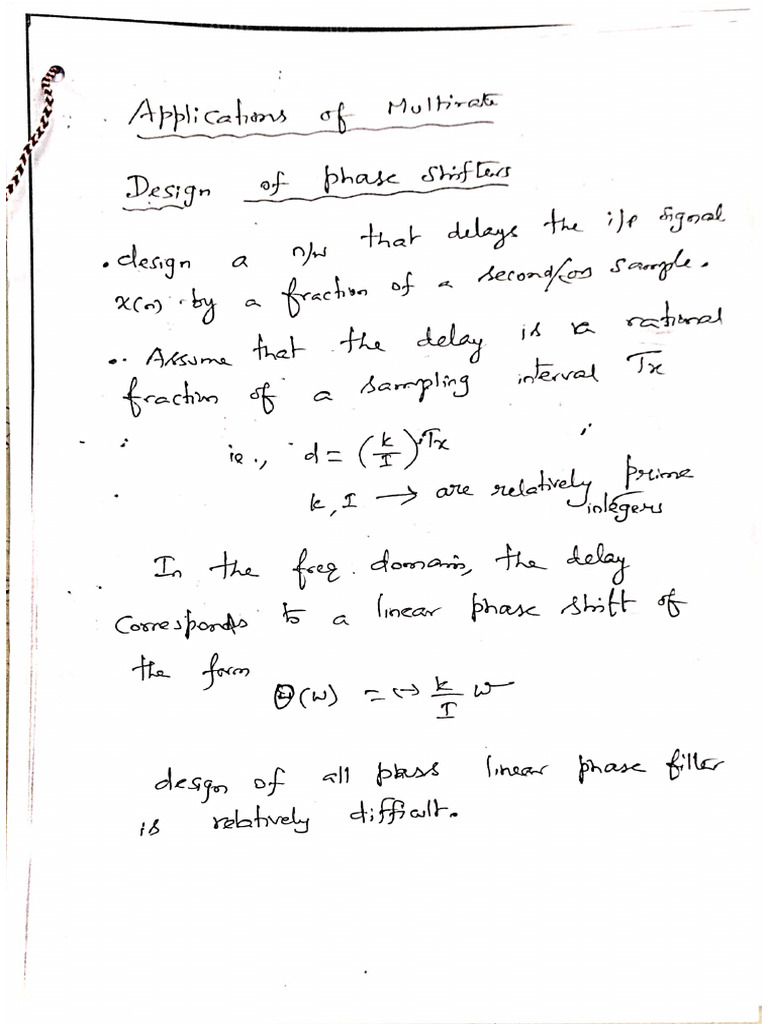 Applications of Multirate
Design of phase shifters
. design a n/w that delays the i/p signal
x(n) by a fraction of a second/(or) sample.
. Assume that the delay is a rational
fraction of a sampling interval Tx
ie., d = (k/I) Tx
k, I → are relatively prime
integers
In the freq. domain, the delay
Corresponds to a linear phase shift of
the form
Θ(w) = (-) k/I w
design of all pass linear phase filter
is relatively difficult.